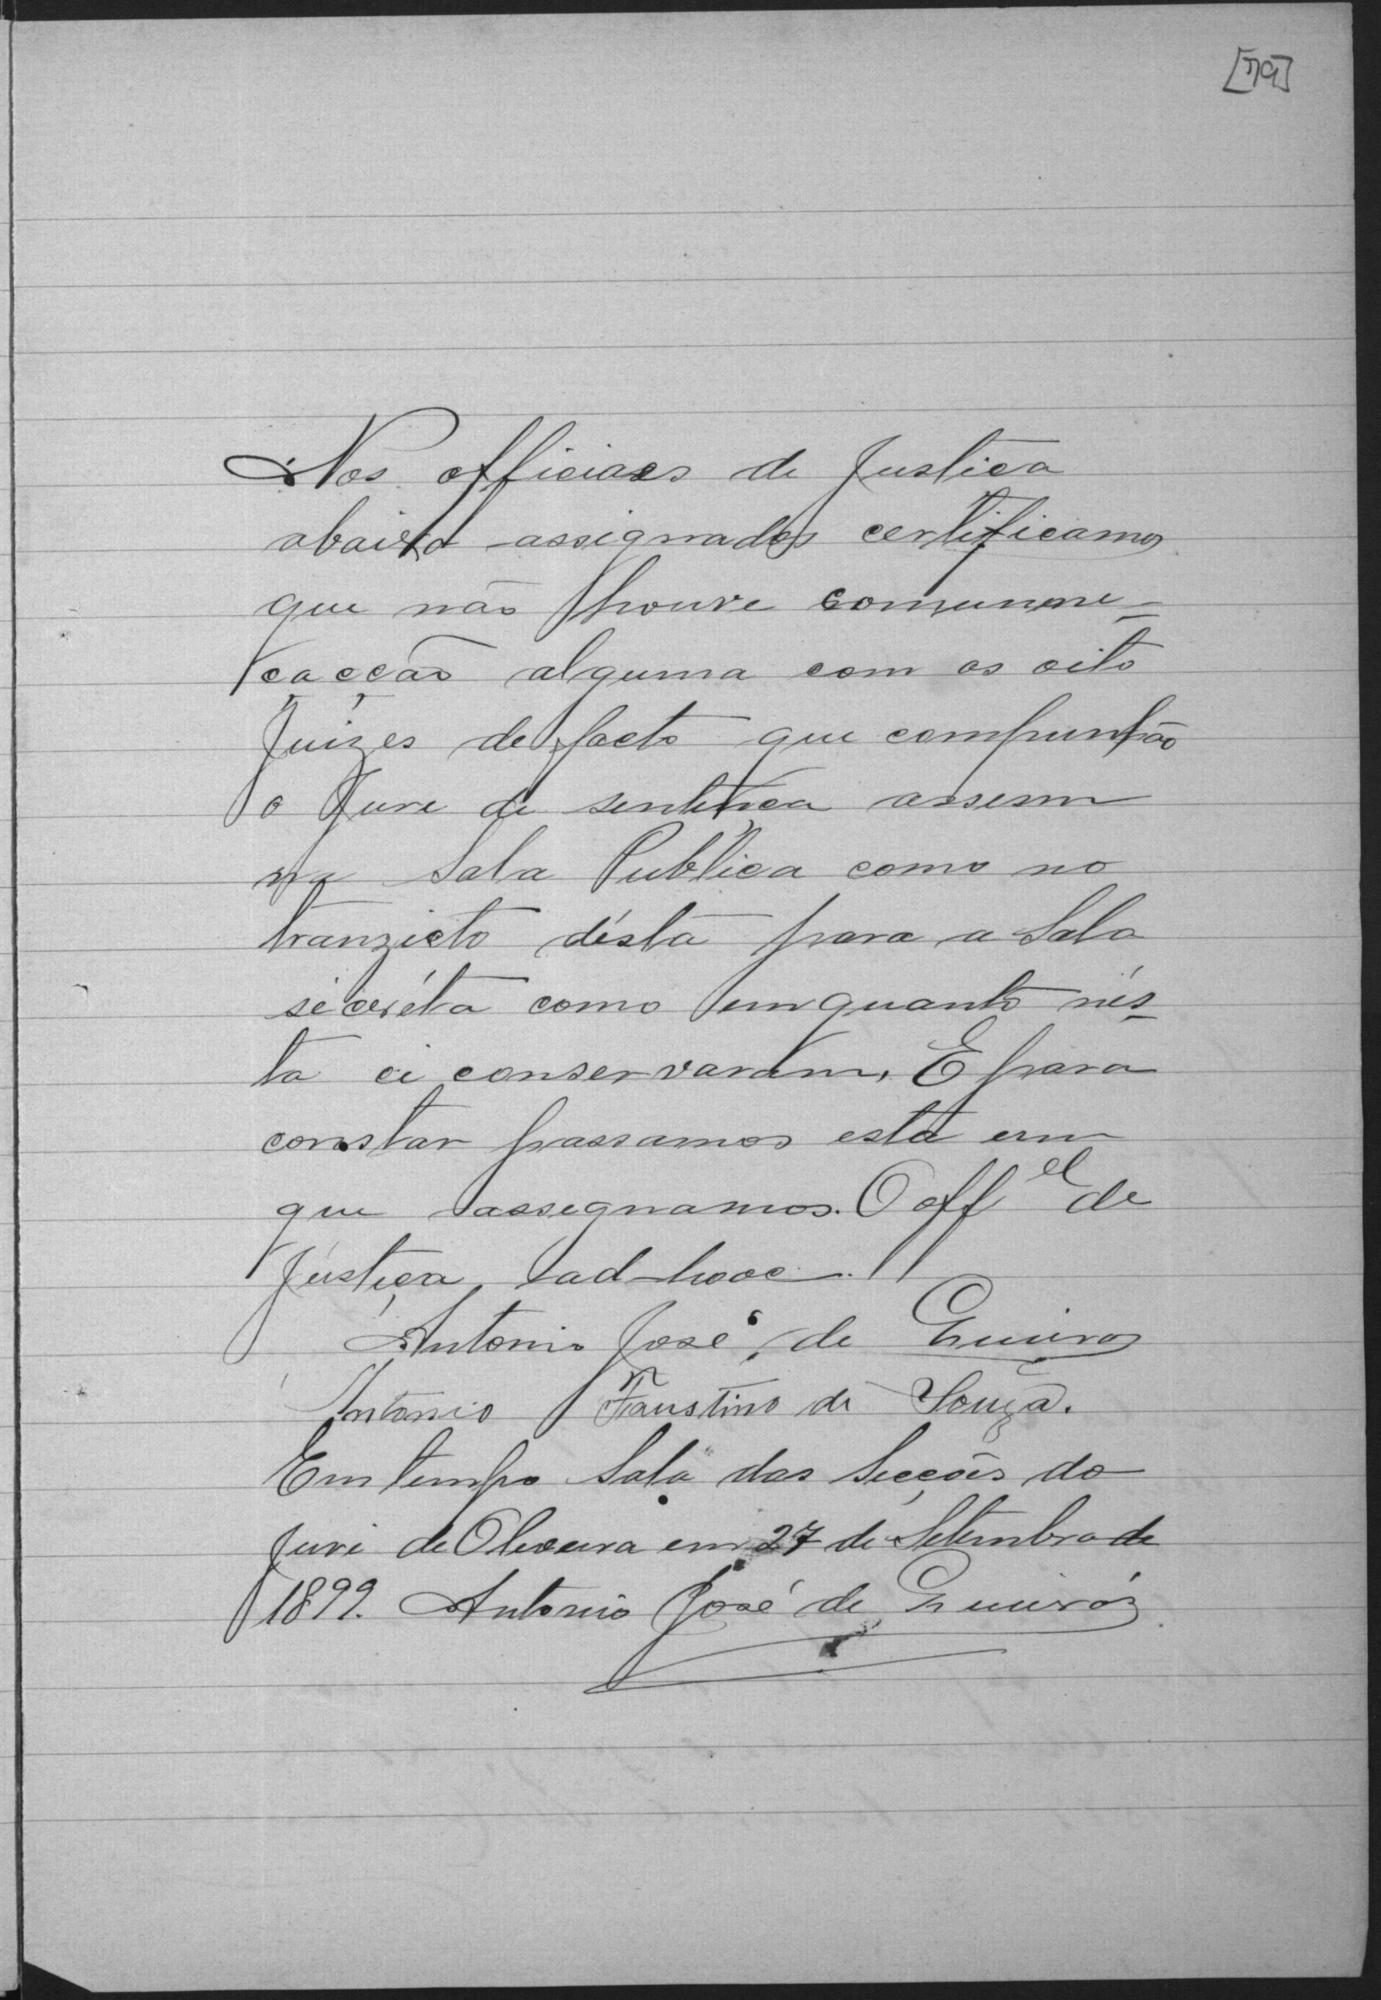 [79]
Nos officiaes de Justica
abaixo assignados certificamos
que não houve comumne-
cacção alguma com os oito
Juizes de facto que compunhão
o Jure de sentença assem
na Sala Publica como no
tranzicto désta para a Sala
secréta como emquanto nés-
ta ci conservaram, E para
constar passamos esta em
que assegnamos. O offel de
Justiça ad-hooc.
Antonio José de Queiros
Antonio Faustino de Souza.
Em tempo Sala das Secções do
Juri de Oliveira em 27 de Setembro de
1899. Antonio José de Queiróz